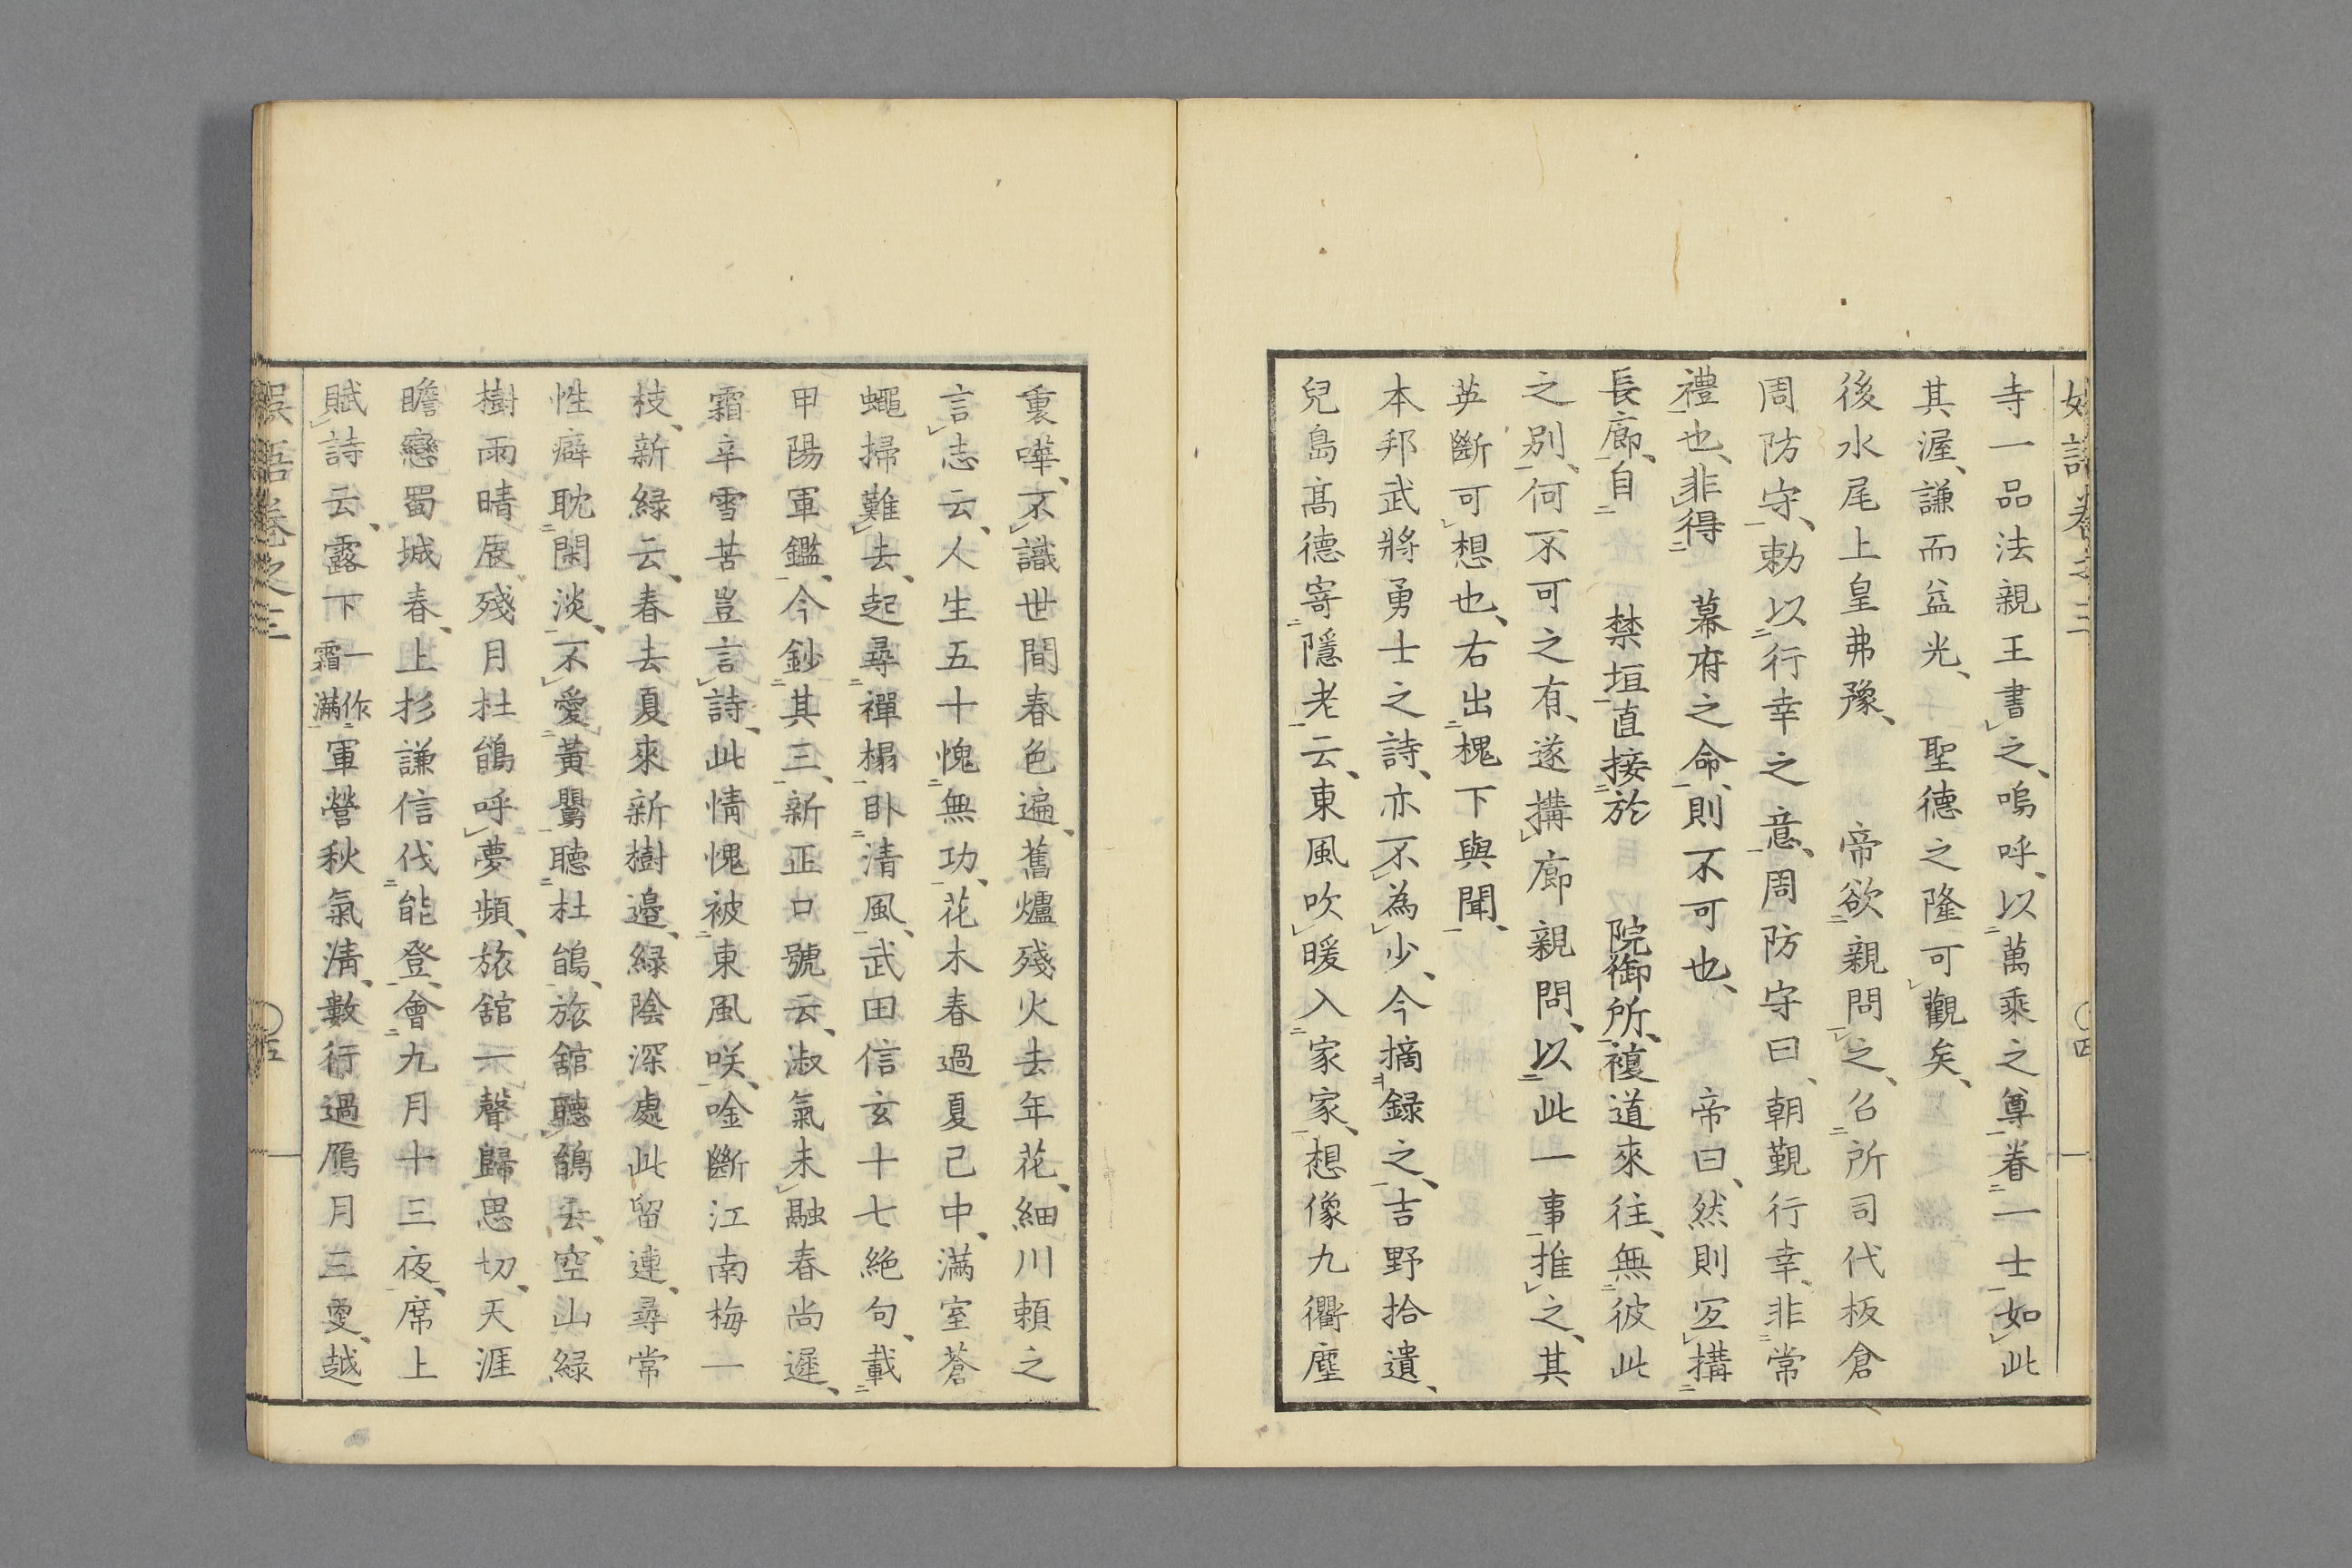 寺一品法親王書之、嗚呼、以萬乘之尊眷一士如此
其渥、謙而益光、聖德之隆可觀矣、
後水尾上皇弗豫、帝欲親問之、召所司代板倉
周防守、勅以行幸之意、周防守曰、朝覲行幸、非常
禮也、非得幕府之命、則不可也、帝曰、然則宜構
長廊、自禁垣直接於院御所、複道來往、無彼此
之別、何不可之有、遂搆廊親問、以此一事推之、其
英斷可想也、右出槐下與聞、
本邦武將勇士之詩、亦不為少、今摘録之、吉野拾遺、
兒島高德寄隱老云、東風吹暖入家家、想像九衢塵
裏嘩、不識世間春色遍、舊爐殘火去年花、細川頼之
言志云、人生五十愧無功、花木春過夏已中、滿室蒼
蠅掃難去、起尋禪榻臥清風、武田信玄十七絶句、載
甲陽軍鑑、今鈔其三、新正口號云、淑氣未融春尚遲、
霜辛雪苦豈言詩、此情愧被東風咲、吟斷江南梅一
枝、新緑云、春去夏來新樹邊、緑陰深處此留連、尋常
性癖耽閑淡、不愛黃鸎聽杜鵑、旅舘聽鵑云、空山緑
樹雨晴辰、殘月杜鵑呼夢頻、旅舘一聲歸思切、天涯
瞻戀蜀城春、上杉謙信伐能登、會九月十三夜、席上
賦詩云、露下一作霜滿軍營秋氣淸、數行過鴈月三更、越
語卷之三